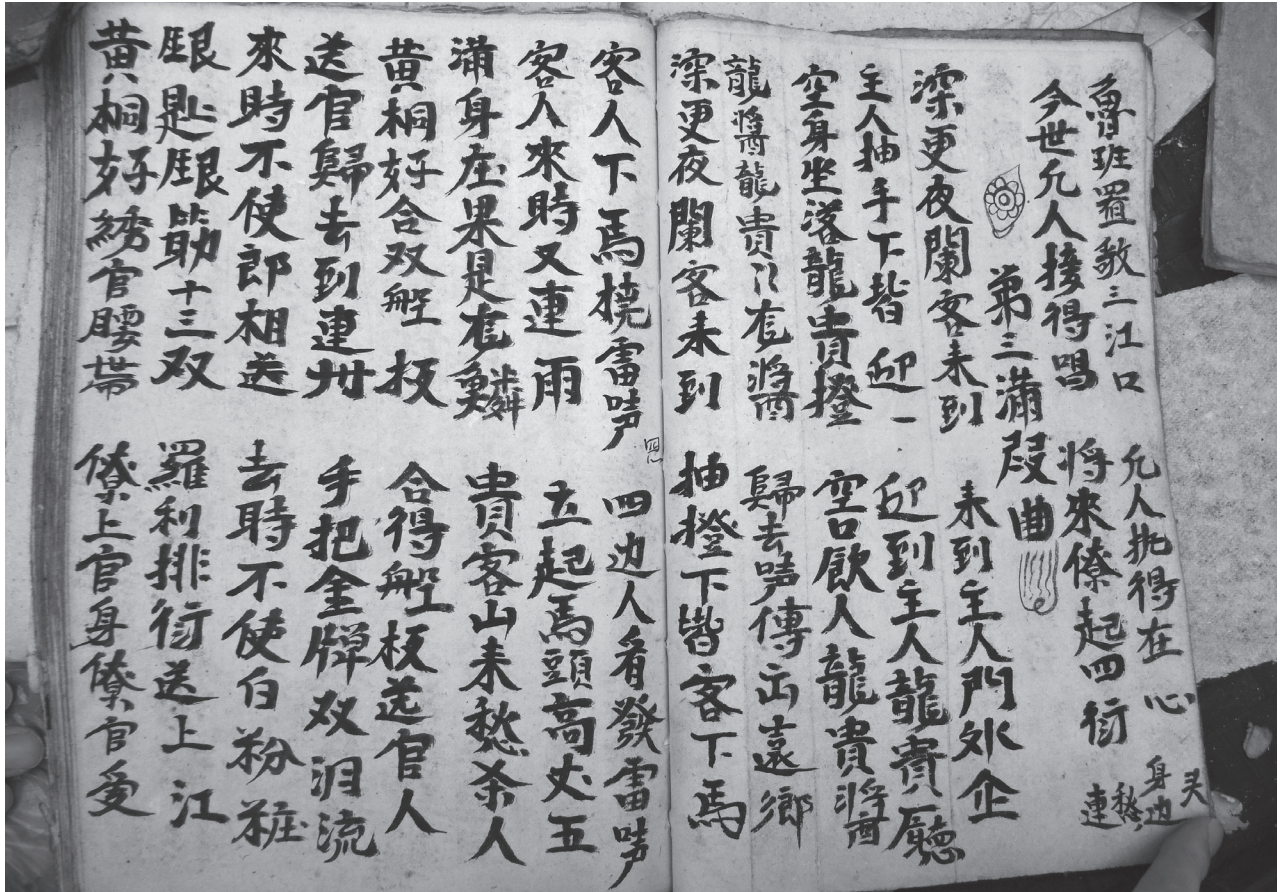 魯班置敎三江口 允人执得在心
今世允人接得唱 將來僚起四衍
身边
愁
連
弟三滿段曲
深更夜闌客来到 来到主人門外企
主人抽手下皆迎一 迎到主人龍貴廳
空身坐落龍貴橙 空口飲人龍貴將酉
龍醬龍貴〻有醬 歸去唛傳出遠鄉
深更夜闌客来到 抽橙下皆客下馬
客人下馬撓雷唛 四边人看發雷唛
客人來時又連雨 立起馬頭高丈五
滿身在果是有鱗 貴客山来愁杀人
黃桐好合双舩板 合得舩板送官人
送官歸去到連州 手把金牌双泪流
來時不使郎相送 去時不使白粉粧
眼匙眼筯十三双 羅利排衍送上江
黃桐好綉官腰带 僚上官身僚官愛